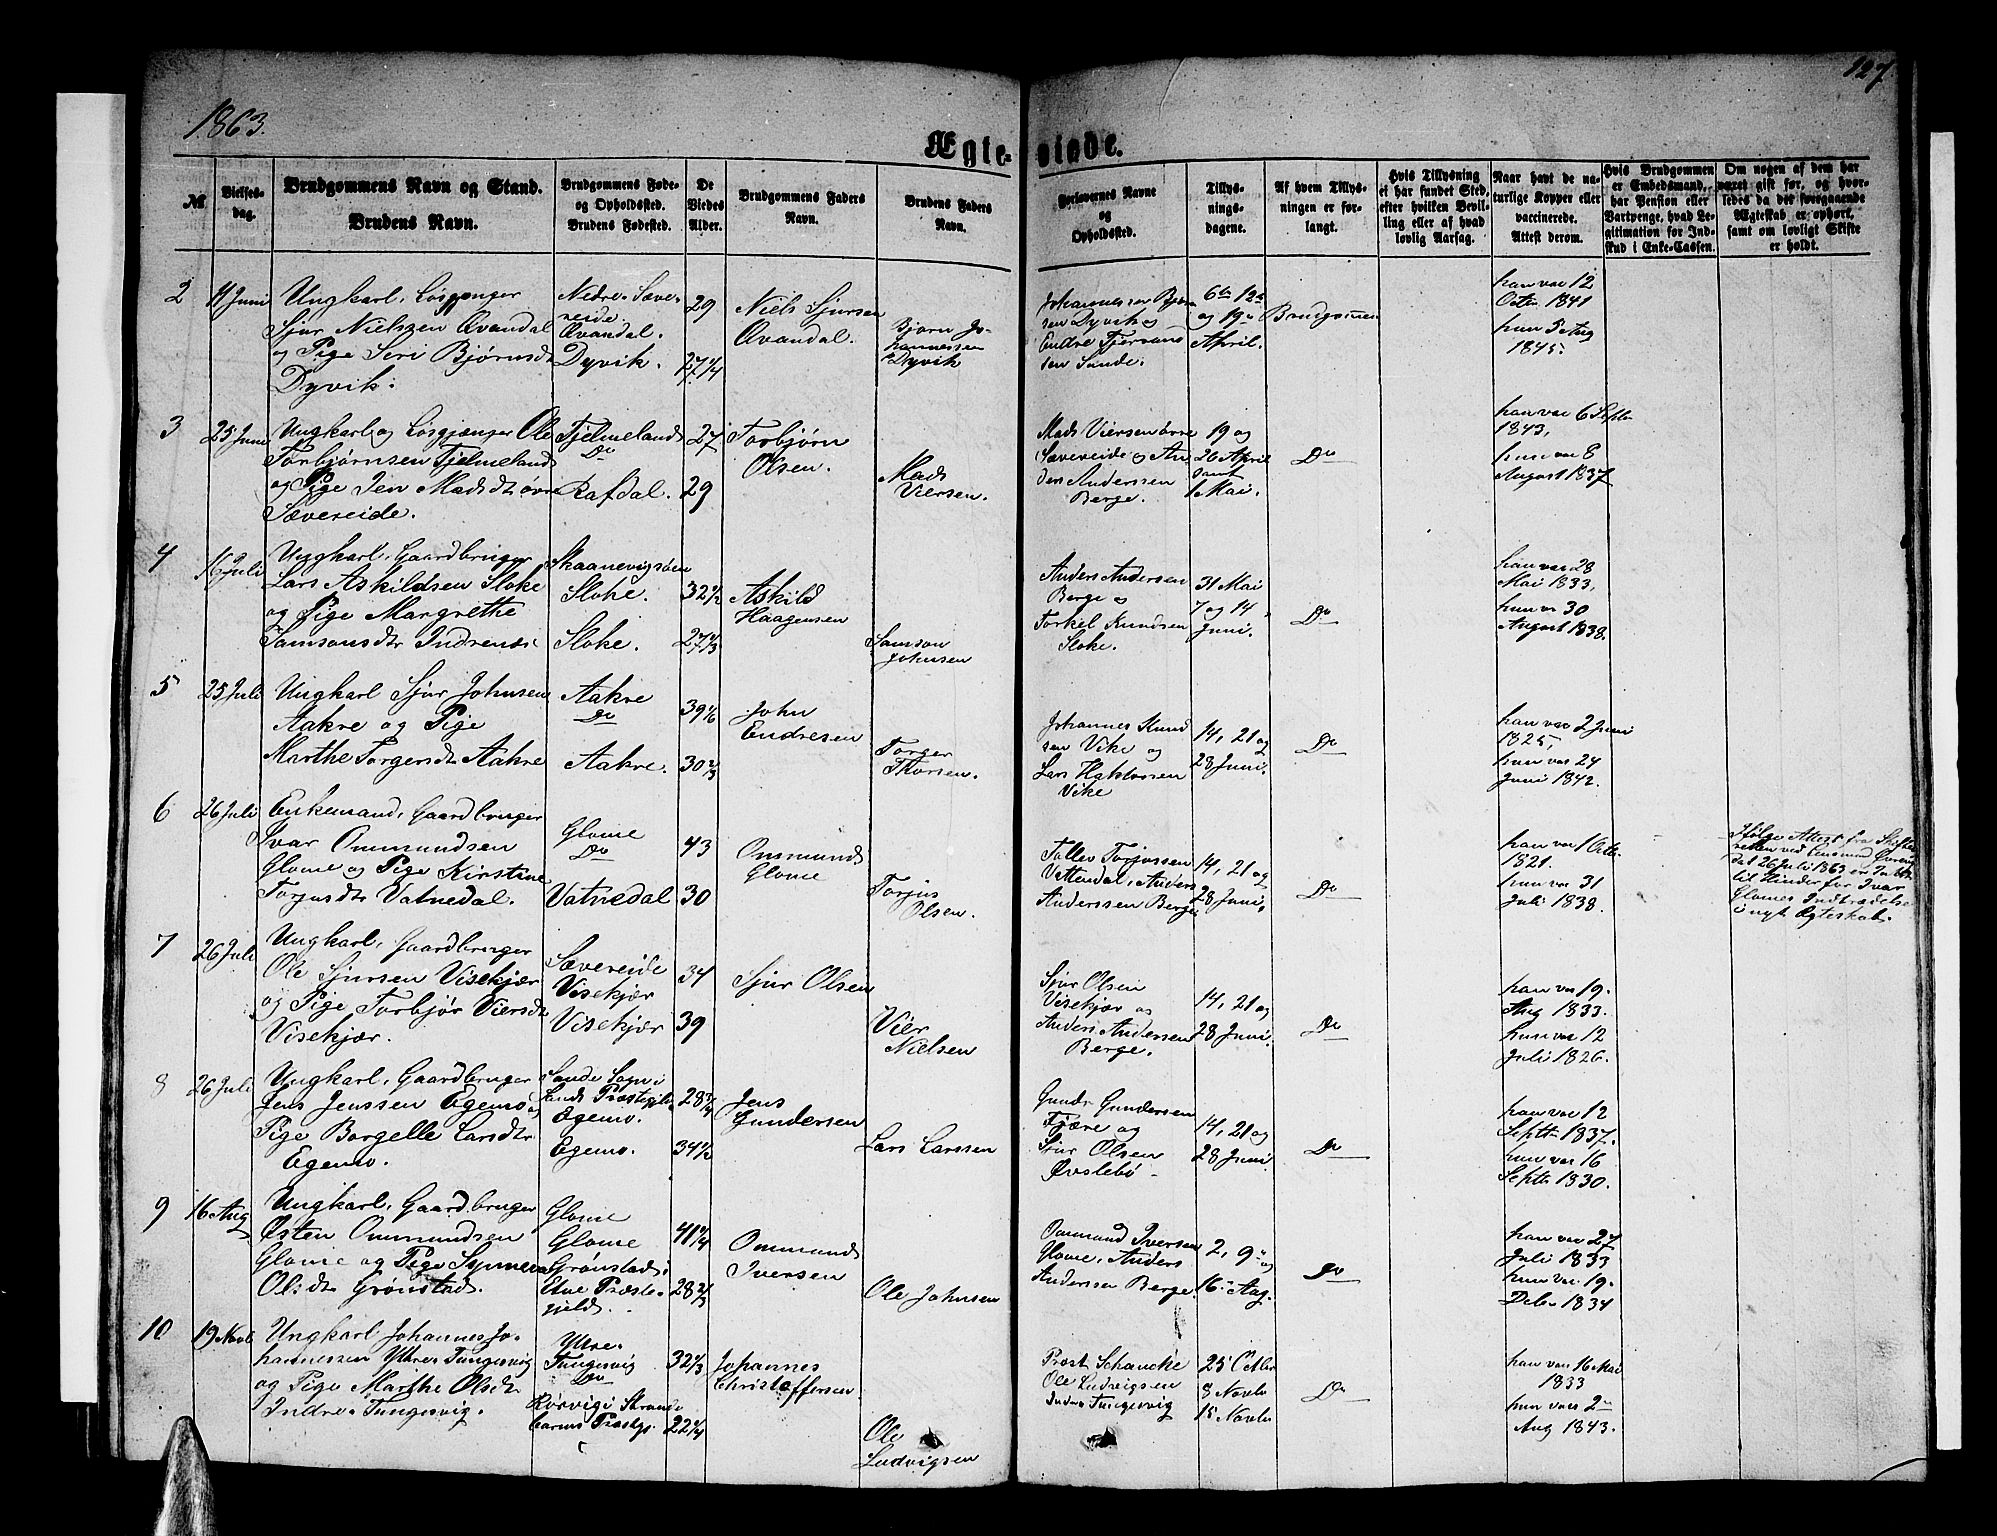 1863.
127.
Ægte-
viede.
№.
Vielses-
dag.
Brudgommens Navn og Stand.
Brudens Navn.
Brudgommens Føde-
og Opholdsted.
Brudens Fødested.
De
Viedes
Alder.
Brudgommens Faders
Navn.
Brudens Faders
Navn.
Forlovernes Navne
og
Opholdsted.
Tillys-
nings-
dagene.
Af hvem Tillys-
ningen er for-
langt.
Hvis Tillysning
ei har fundet Sted,
efter hvilken Bevil-
ling eller af hvad
lovlig Aarsag.
Naar havt de na-
turlige Kopper eller
vaccinerede.
Attest derom.
Hvis Brudgommen
er Embedsmand,
har Pension eller
Vartpenge, hvad Le-
gitimation for Ind-
skud i Enke-Cassen.
Om nogen af dem har
været gift før, og hvor-
ledes da det foregaaende
Ægteskab er ophørt,
samt om lovligt Skifte
er holdt.
2
11 Juni
Ungkarl, Løsgjænger
Sjur Nielssen Ævandal
og Pige Seri Bjørnsdt
Dyvik.
Nedre-Sæve-
reide.
Ævandal.
Dyvik.
29
27 1/4
Niels Sjursen
Ævandal.
Bjørn Jo-
hannessen
Dyvik
Johannessen Bjørn
sen Dyvik og
Endre
sen Sunde.
6te 12te
og 19de
April.
Brudgommen
han var 12
Octbr 1841
hun 5 Aug
1845.
3
25 Juni
Ungkarl og Løsgjænger Ole
Torbjørnsen Fjelmeland
og Pige Jen Madsdt øvre
Sævereide.
Fjelmeland
Do
Rafdal.
27
29
Torbjørn
Olsen.
Mads
Viersen.
Mads Viersen øvre
Sævereide og An
ders Anderssen
Berge.
19 og
26 April
samt
1 Mai.
Do
han var 6 Septbr
1843,
hun var 8
August 1837
4
16 Juli
Ungkarl, Gaardbruger
Lars Askildsen Sloke
og Pige Margrethe
Samsonsdtr Indrenæs
Skaanevigsøen
Sloke.
Sloke.
32 1/2
27 2/3
Askild
Haagensen
Samson
Johnsen
Anders Andersen
Berge og
Torkel Knudsen
Sloke.
31 Mai
7 og 14
Juni.
Do
han var 28
Mai 1833,
hun var 30
August 1838.
5
25 Juli
Ungkarl Sjur Johnsen
Aakre og Pige
Marthe Torgersdt Aakre
Aakre
Do
Aakre.
39 1/6
30 2/3
John
Endresen
Torger
Thorsen.
Johannes Knud
sen Vike og
Lars
Vike
14, 21 og
28 Juni.
Do
han var 2 Juni
1825,
hun var 24
Juni 1842.
6
26 Juli
Enkemand, Gaardbruger
Ivar Ommundsen
Glome og Pige Kirstine
Torjusdtr Vatnedal.
Glome
Do
Vatnedal
43
30
Ommund
Glome
Torjus
Olsen.
Tollev Torjussen
Vattendal, Anders
Anderssen Berge
14, 21 og
28 Juni.
Do
han var 1 Octbr.
1821.
hun var 31
Juli 1838.
Ifølge Attest fra Skifte
retten ved
dat 26 Juli 1863 er Intet
til Hinder for Ivar
Glomes Indtrædelse
i nyt Ægteskab.
7
26 Juli
Ungkarl, Gaardbruger
Ole Sjursen Visekjær
og Pige Torbjør Viersdt
Visekjær.
Sævereide
Visekjær
Visekjær
34
39
Sjur Olsen
Vier
Nielsen
Sjur Olsen
Visekjær og
Anders Anderssen
Berge.
14, 21 og
28 Juni.
Do
han var 19
Aug 1833.
hun var 12
Juli 1826.
8
26 Juli
Ungkarl, Gaardbruger
Jens Jenssen Egemo og
Pige Borgelle Larsdtr
Egemo.
Sande Sogn i
Præstegjeld
Egemo.
Egemo.
28 3/4
34 1/2
Jens
Gundersen
Lars Larssen
Gundr Gundersen
Fjære og
Sjur Olsen
Øvslebø
14, 21 og
28 Juni
Do
han var 12
Septbr 1837.
hun var 16
Septbr 1830.
9
16 Aug
Ungkarl, Gaardbruger
Østen Ommundsen
Glome og Pige Synneva
Olsdtr Grønstad.
Glome
Glome
Grønstad i
Etne Præste-
gjeld.
41 1/4
28 2/3
Ommund
Iversen
Ole Johnsen
Ommund Iversen
Glome, Anders
Anderssen Berge.
2, 9 og
16 Aug.
Do
han var 27
Juli 1833
hun var 19
Debr 1834
10
19 Novb
Ungkarl Johannes Jo-
hannessen Yttre Tungesvig
og Pige Marthe Olsdt
Indre Tungesvig.
Yttre
Tungesvig
Do
Rørvig i Strande
barms Præstgj.
32 1/3
22 1/4
Johannes
Christoffersen
Ole
Ludvigsen
Prost Schancke
Ole Ludvigsen
Indre Tungesvig
25 Octbr
8 Novbr
15 Novbr
Do
han var 16 Mai
1833
hun var 2
Aug 1843.